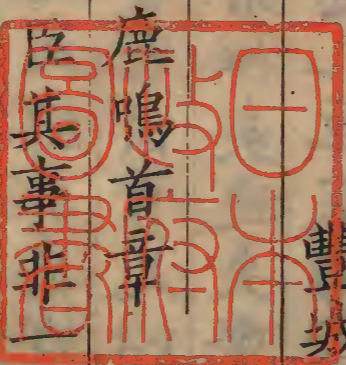 豐城
鹿鳴首章
臣其事非一
日本
政府
圖書